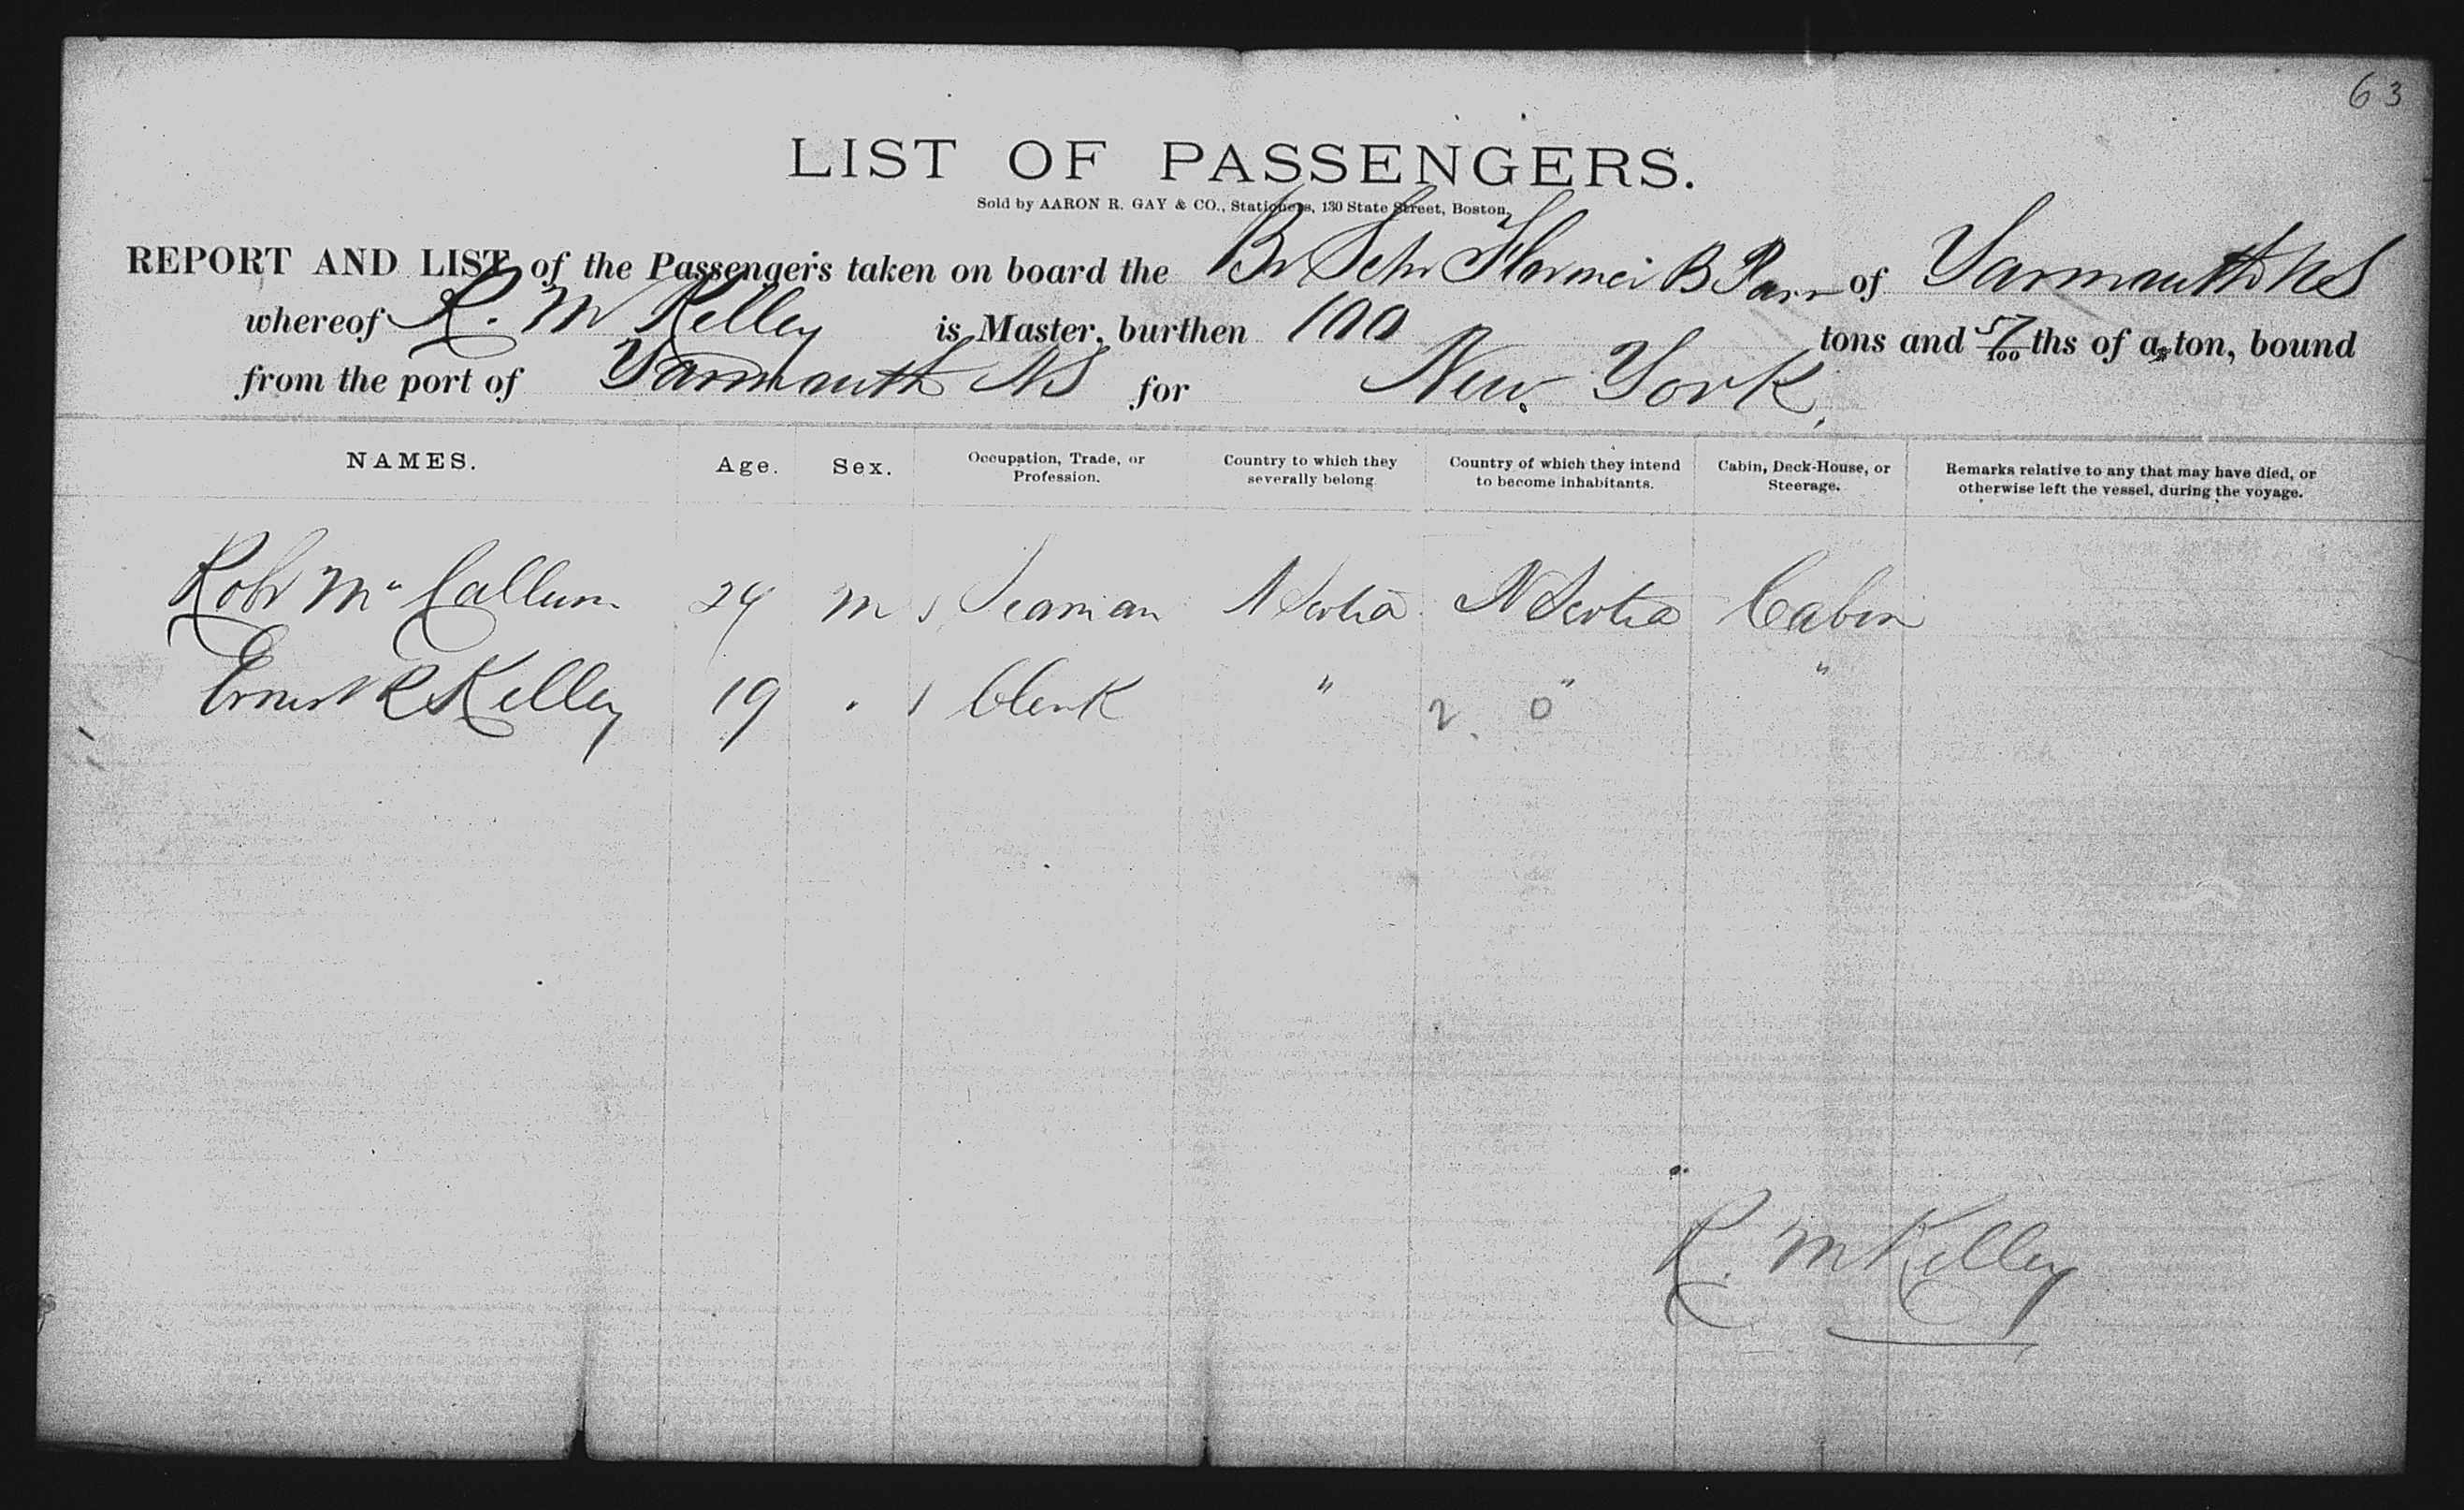 63
LIST OF PASSENGERS.
Sold by AARON R. GAY & CO., Stationers, 130 State Street, Boston.
REPORT AND LIST of the Passengers taken on board the Br Schr B Parr of Yarmouth NS
whereof R. M Kelley is Master, burthen 100 tons and 57/100 ths of a ton, bound
from the port of Yarmouth NS for New York.
NAMES. Age. Sex. Occupation, Trade, or Profession. Country to which they severally belong Country of which they intend to become inhabitants. Cabin, Deck-House, or Steerage. Remarks relative to any that may have died, or otherwise left the vessel, during the voyage.
Robt Mc Callum 24 m s Seaman N Scotia N Scotia Cabin
Ernest R Kelley 19 " s Clerk " " "
2 0
R. M Kelley